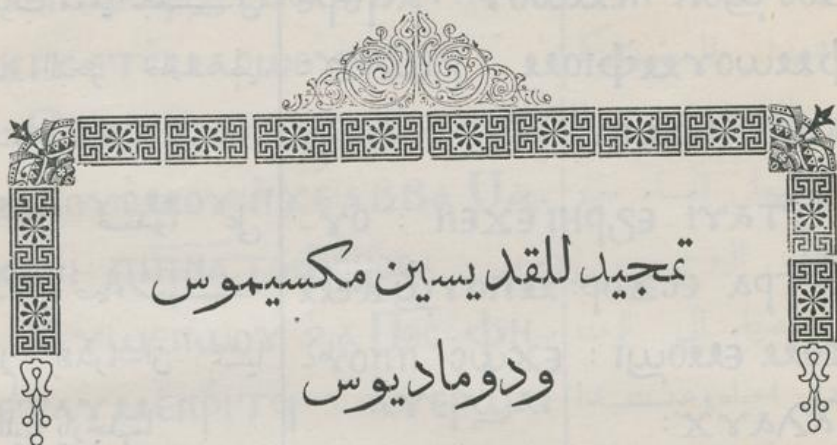 تمجيد للقديسين مكسيموس
ودوماديوس